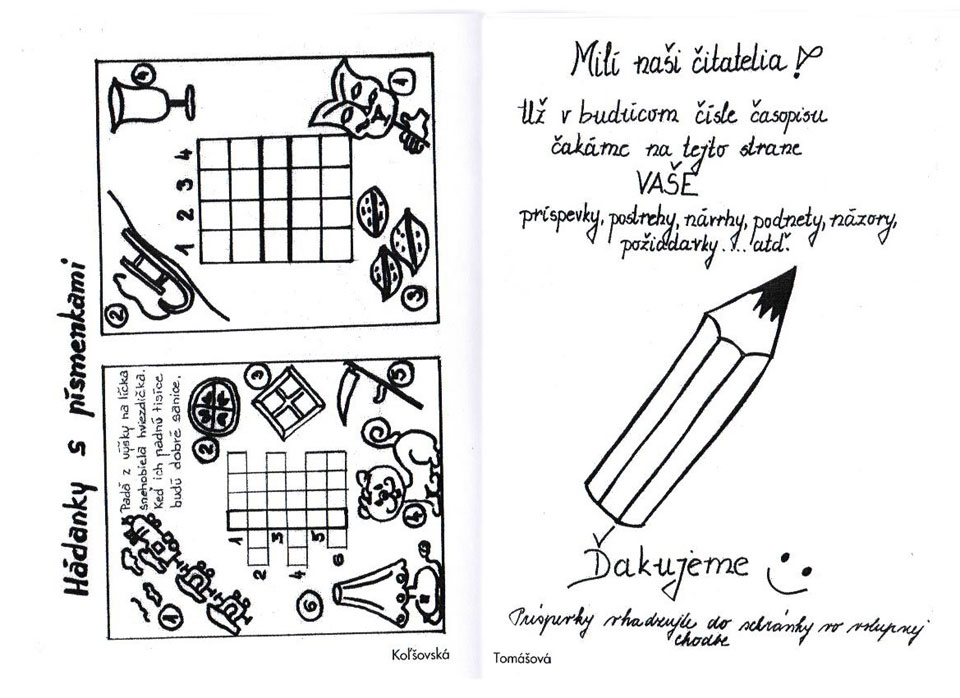 Hádanky s písmenkami
Padá z výšky na líčka
snehobiela hviezdička.
Keď ich padnú tisíce
budú dobré sanice.
1
2
3
4
5
6
1
2
3
4
5
6
1
2
3
4
1 2 3 4
Koľšovská
Milí naši čitatelia!
Už v budúcom čísle časopisu
čakáme na tejto strane
VAŠE
príspevky, postrehy, návrhy, podnety, názory,
požiadavky.... atď.
Ďakujeme
Príspevky vhadzujte do schránky vo vstupnej
chodbe
Tomášová